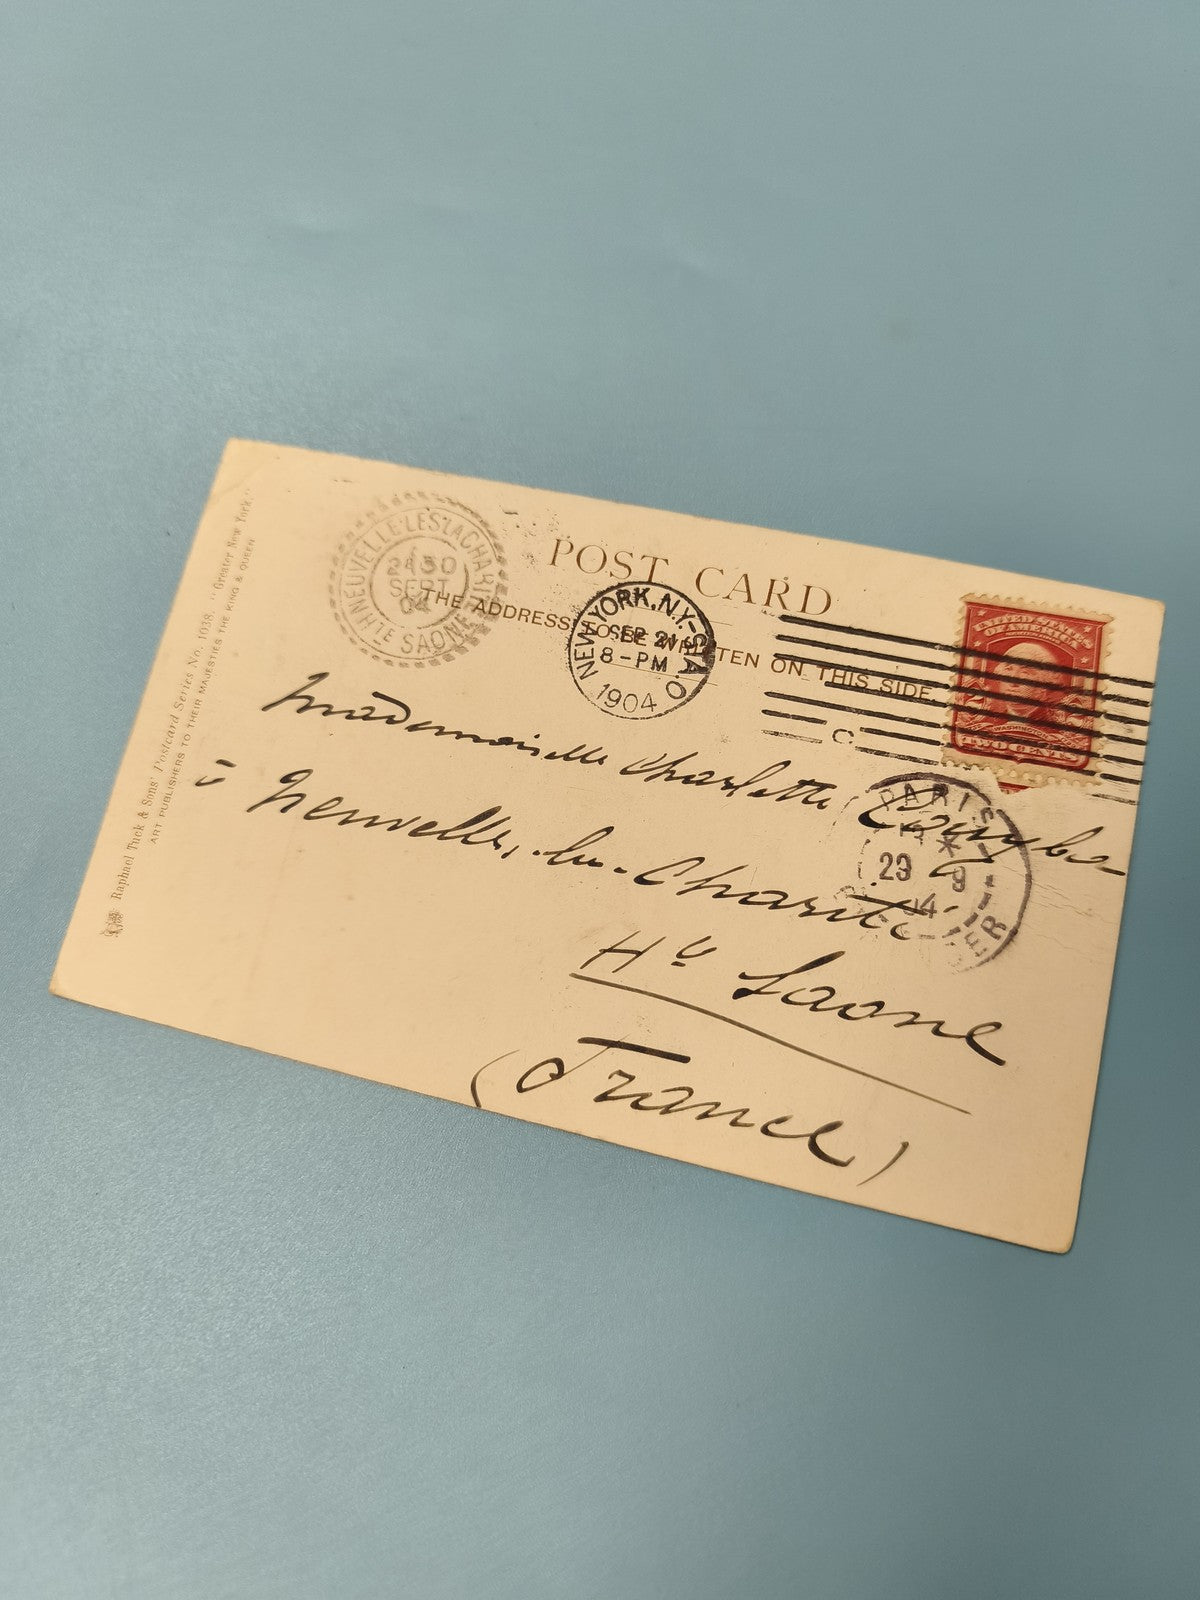 POST CARD
THE ADDRESS TO BE WRITTEN ON THIS SIDE
Raphael Tuck & Sons' Postcard Series No. 1038. "Greater New York."
ART PUBLISHERS TO THEIR MAJESTIES THE KING & QUEEN
NEUVELLE-LES-LA CHARITÉ
30
SEPT
04
HTE SAONE
NEW YORK, N.Y. STA. O
SEP 21
8-PM
1904
C
UNITED STATES OF AMERICA
WASHINGTON
TWO CENTS
PARIS
29 9
04
Mademoiselle Charlotte
à Neuvelle, la-Charité
Hte Saone
(France)